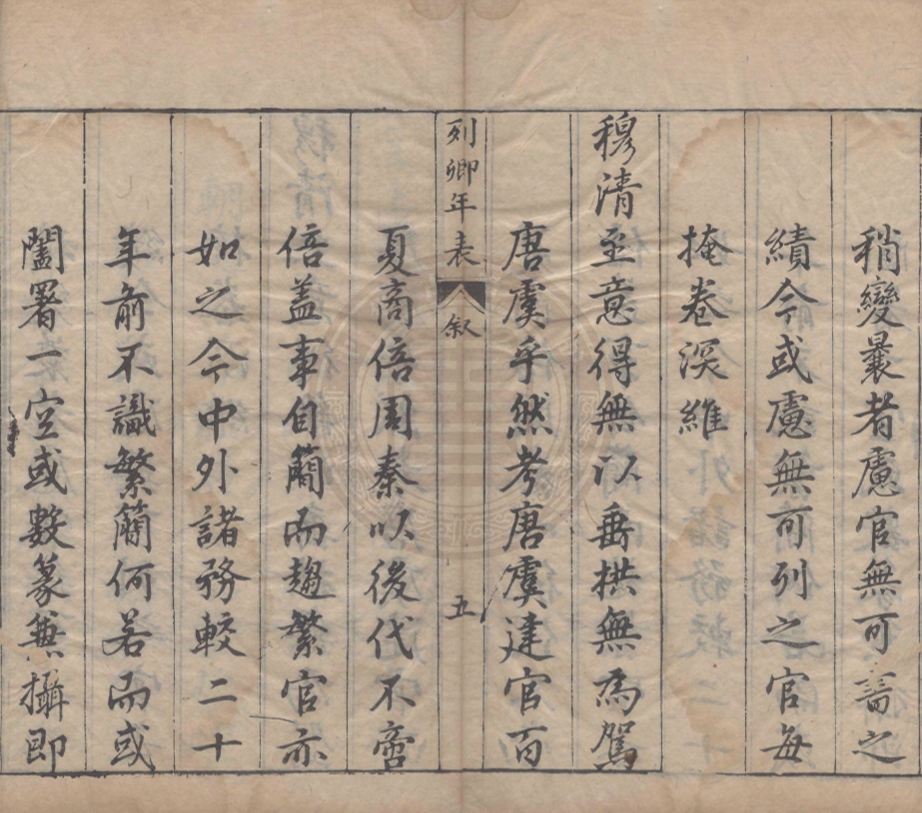 稍變曩者慮官無可書之
績今或慮無可列之官每
掩卷深維
穆清至意得無以垂拱無為駕
唐虞乎然考唐虞建官百
列卿年表 叙 五
夏商倍周秦以後代不啻
倍蓋事自簡而趨繁官亦
如之今中外諸務較二十
年前不識繁簡何若而或
闔署一空或數篆兼攝即